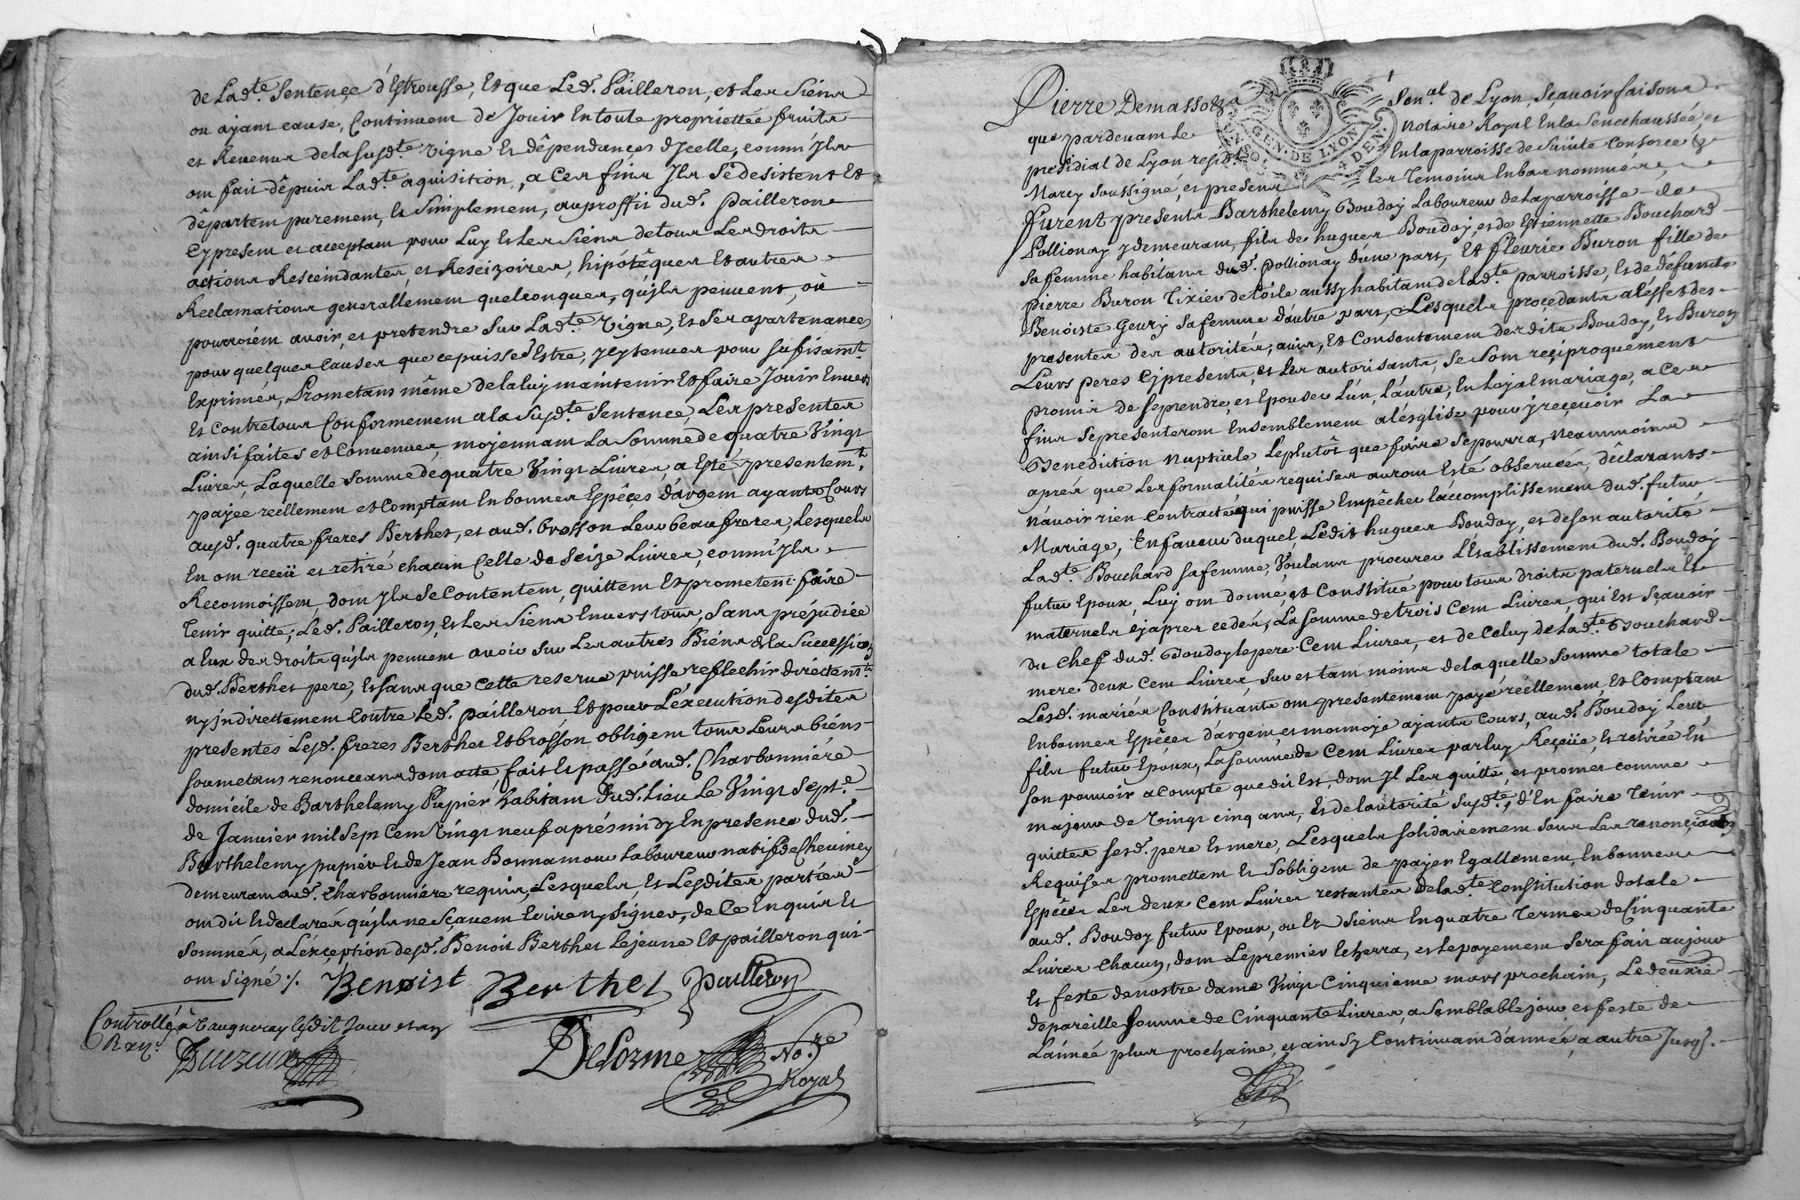 de Lad.te Sentençe d'Estrousse, Et que Led. Pailleron, et Les Siens
ou ayant cause, Continuent de Jouir En toute proprietée fruits
et Revenus de la Susd.te Vigne Et dépendances d'Jcelle, comm'Jls
ont fait dépuis Lad.te aquisition, a Ces fins Jls Se desistent Et
départent purement, Et Simplement, au proffit dud. Pailleron
Cy present et acceptant pour Luy Et Les Siens de tous Les droits
actions Rescindantes et Rescizoires, hipôtêques Et autres
Reclamations generallement quelconques, qu'jls peuvent, où
pourroient avoir, et pretendre Sur Lad.te Vigne, Et Ses apartenances
pour quelques Causes que ce puisse d'Estre, Jcy tenues pour Sufisamt.
Exprimés, Prometans même de la luy maintenir Et faire Jouir Envers
Et Contre tous Conformement a la Susd.te Sentance, Les presentes
ainsi faites et Convenues, moyennant La Somme de quatre Vingt
Livres, Laquelle Somme de quatre Vingt Livres, a Esté presentemt.
payée réellement et Comptant En bonnes Espêces d'argent ayants Cours
ausd. quatre freres Berthet, et aud. Brosson Leur beau frere, Lesquels
En ont reçeü et retiré chacun Celle de Seize Livres, comm'Jls
Reconnoissent, dont Jls Se Contentent, quittent Et prometent faire
Tenir quitte, Led. Pailleron, Et Les Siens Envers tous, Sans préjudice
a Eux des droits qu'jls peuvent avoir Sur Les autres Biens de la Succession
dud. Berthet pere, Et Sans que Cette reserve puisse reflechir directemt.
ny jndirectement Contre Led. Pailleron Et pour L'execution desdites
presentes Lesd. freres Berthet Et brosson obligent tous Leurs biens
soumetans renonceans dont acte fait Et passé aud. Charbonniere
domicile de Barthelemy Pupier habitant dud. Lieu Le Vingt Sept.e
de Janvier mil Sept Cent Vingt neuf aprés midy En presence dud.
Barthelemy pupier Et de Jean Bonnamour Laboureur natif de Cheviney
demeurant aud. Charbonniére requis, Lesquels, Et Lesdites parties
ont dit Et declarés qu'jls ne Sçavent Ecrire ny Signer, de Ce Enquis Et
Sommés, a L'exception desd. Benoit Berthet Lejeune Et pailleron qui
ont Signé ./.
Benoist Berthet Pailleron
Controllé à Vaugneray lesdit Jour et an
DeLorme No.re
Royal
Pierre Demassoz Sen.al de Lyon, Sçavoir faisons
que pardevant Le Notaire Royal En la Senechaussée et
presidial de Lyon resid.t En la parroisse de Sainte Consorce &
Marcy Soussigné, et presens Les Temoins En bas nommés,
Furent presents Barthelemy Boudoy Laboureur de la parroisse de
Pollionay y demeurant, fils de hugues Boudoy, et de Estiennette Bouchard
Sa femme habitans dud. Pollionay d'une part, Et fleurie Buron fille de
pierre Buron Tixier de toile aussy habitant de Lad.te parroisse, Et de défuncte
Benoiste Geury Sa femme d'autre part, Lesquels proçedants a l'effet des
presentes des autorités, avis, Et Consentement desdits Boudoy, Et Buron
Leurs peres Cy presents, et Les autorisants, Se Sont reçiproquement
promis de Se prendre, et Epouser L'un, L'autre, En Loyal mariage, a Ces
fins Se presenteront Ensemblement a l'Esglise pour y reçevoir La
Benediction nuptiale Le plutôt que faire Se pourra, neanmoins
aprés que Les formalités requises auront Esté observées, déclarants
n'avoir rien Contracté qui puisse Empêcher l'accomplissement dud. futur
Mariage, En faveur duquel Ledit hugues Boudoy, et de Son autorité
Lad.te Bouchard Sa femme, Voulans procurer L'Etablissement dud. Boudoy
futur Epoux, Luy ont donné, et Constitué pour tous droits paternels Et
maternels cy aprés cedés, La Somme de trois Cent Livres, qui Est Sçavoir
du Chef dud. Boudoy le pere Cent Livres, et de Celuy de Lad.te Bouchard
mere deux Cent Livres, Sur et tant moins de laquelle Somme totale
Lesd. mariés Constituants ont presentement payé réellement, Et Comptant
En bonnes Espêces d'argent, et monnoye ayants Cours, aud. Boudoy Leur
fils futur Epoux, La Somme de Cent Livres par luy Reçeüe, Et retirée En
Son pouvoir a Compte que dit Est, dont Jl Les quitte, et promet comme
majeur de Vingt Cinq ans, Et de l'autorité Susd.te, d'En faire Tenir
quittes Sesd. pere Et mere, Lesquels Solidairement Sous Les renonçiations
Requises promettent Et S'obligent de payer Egallement, En bonnes
Espêces Les deux Cent Livres restantes de Lad.te Constitution dotale
aud. Boudoy futur Epoux, ou Es Siens En quatre Termes de Cinquante
Livres Chacun, dont Le premier Echerra, et Le payement Sera fait au jour
Et feste de nostre dame Vingt Cinquieme mars prochain, Le deuxiê
de pareille Somme de Cinquante Livres, a Semblable jour et feste de
L'année plus prochaine, et ainsy Continuant d'année, a autre Jusq.
GEN. DE LYON
4 DEN.